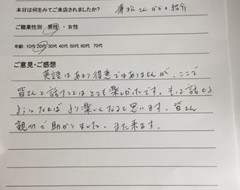 本日は何をみてご来店されましたか? 康祐さんからの紹介
ご職業性別 男性・女性
年齢 10代 20代 30代 40代 50代 60代 70代
ご意見・ご感想
英語はあまり得意ではありませんが、ここで
皆さんと話すことはとても楽しかったです。もっと話せる
ようになればより楽しくなると思います。皆さん
親切で助かりました。また来ます。